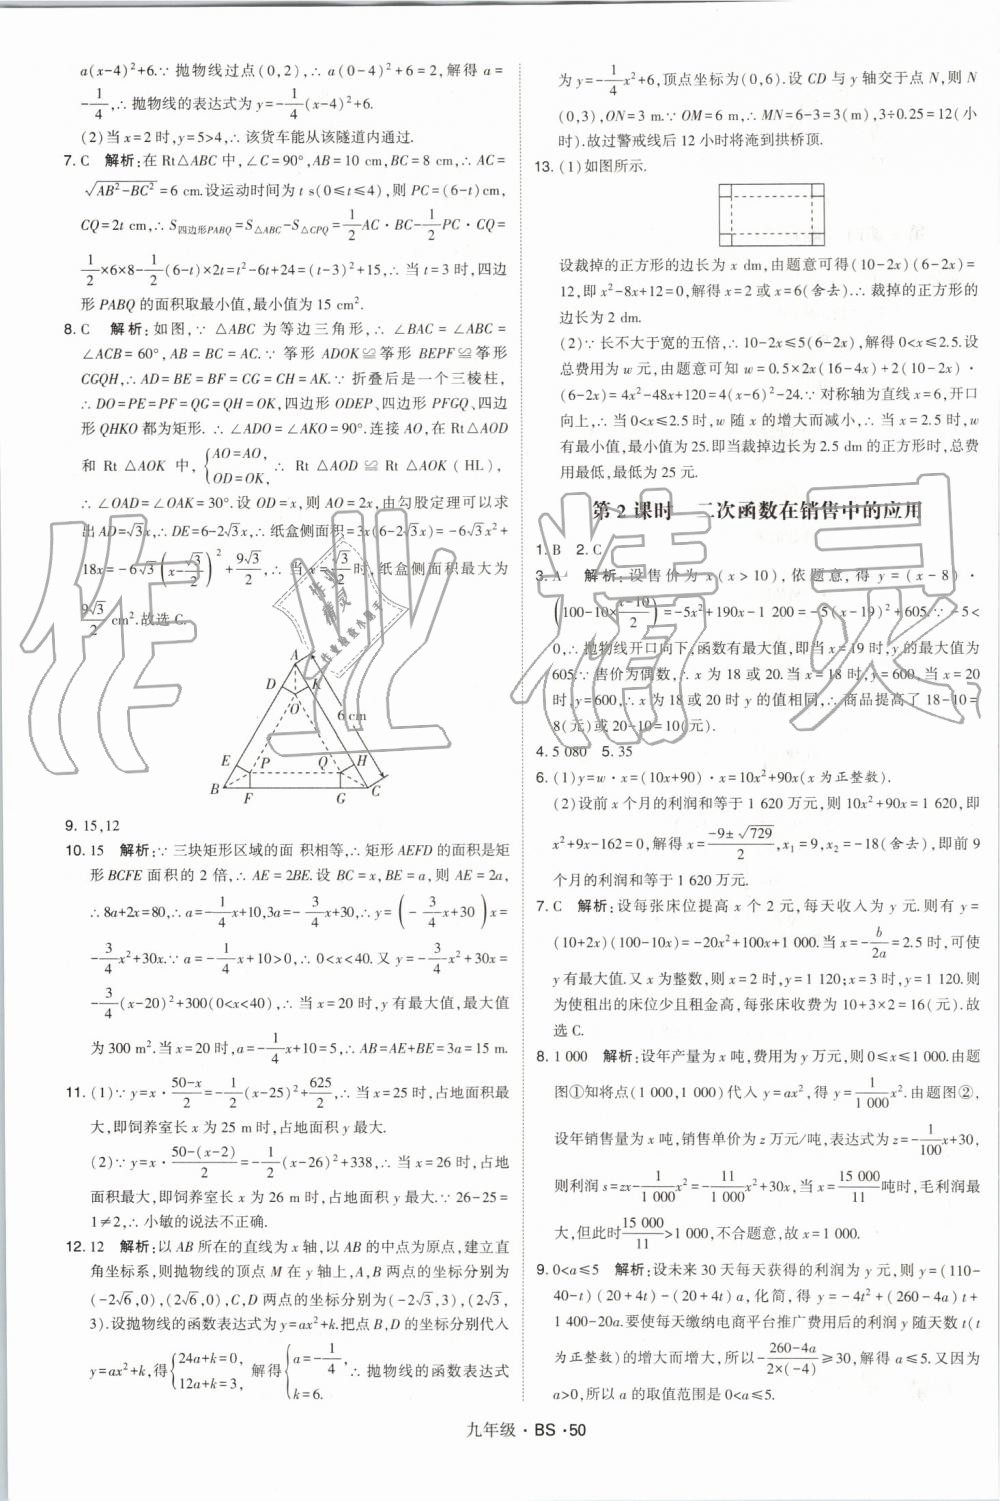 a(x-4)²+6.∵抛物线过点(0,2),∴a(0-4)²+6=2,解得 a=
-1/4,∴抛物线的表达式为 y=-1/4(x-4)²+6.
(2)当 x=2时,y=5>4,∴该货车能从该隧道内通过.
7. C 解析:在 Rt△ABC 中,∠C=90°,AB=10 cm,BC=8 cm,∴AC=
√(AB²-BC²)=6 cm.设运动时间为 t s(0≤t≤4),则 PC=(6-t)cm,
CQ=2t cm,∴S四边形PABQ=S△ABC-S△CPQ=1/2AC·BC-1/2PC·CQ=
1/2×6×8-1/2(6-t)×2t=t²-6t+24=(t-3)²+15,∴当 t=3 时,四边
形 PABQ 的面积取最小值,最小值为 15 cm².
8. C 解析:如图,∵△ABC 为等边三角形,∴∠BAC=∠ABC=
∠ACB=60°,AB=BC=AC.∵筝形 ADOK≌筝形 BEPF≌筝形
CGQH,∴AD=BE=BF=CG=CH=AK.∵折叠后是一个三棱柱,
∴DO=PE=PF=QG=QH=OK,四边形 ODEP、四边形 PFGQ、四边形
QHKO 都为矩形.∴∠ADO=∠AKO=90°.连接 AO,在 Rt△AOD
和 Rt△AOK 中,{AO=AO, OD=OK,∴Rt△AOD≌Rt△AOK(HL),
∴∠OAD=∠OAK=30°.设 OD=x,则 AO=2x,由勾股定理可以求
出 AD=√3x,∴DE=6-2√3x,∴纸盒侧面积=3x(6-2√3x)=-6√3x²+
18x=-6√3(x-√3/2)²+9√3/2,∴当 x=√3/2时,纸盒侧面积最大为
9√3/2 cm².故选 C.
A
D K
O
6 cm
E P Q H
B F G C
9. 15,12
10. 15 解析:∵三块矩形区域的面 积相等,∴矩形 AEFD 的面积是矩
形 BCFE 面积的 2 倍,∴AE=2BE.设 BC=x,BE=a,则 AE=2a,
∴8a+2x=80,∴a=-1/4x+10,3a=-3/4x+30,∴y=(-3/4x+30)x=
-3/4x²+30x.∵a=-1/4x+10>0,∴x<40.又 y=-3/4x²+30x=
-3/4(x-20)²+300(0<x<40),∴当 x=20 时,y 有最大值,最大值
为 300 m².当 x=20 时,a=-1/4x+10=5,∴AB=AE+BE=3a=15 m.
11. (1)∵y=x·(50-x)/2=-1/2(x-25)²+625/2,∴当 x=25 时,占地面积最
大,即饲养室长 x 为 25 m 时,占地面积 y 最大.
(2)∵y=x·(50-(x-2))/2=-1/2(x-26)²+338,∴当 x=26 时,占地
面积最大,即饲养室长 x 为 26 m 时,占地面积 y 最大.∵26-25=
1≠2,∴小敏的说法不正确.
12. 12 解析:以 AB 所在的直线为 x 轴,以 AB 的中点为原点,建立直
角坐标系,则抛物线的顶点 M 在 y 轴上,A,B 两点的坐标分别为
(-2√6,0),(2√6,0),C,D 两点的坐标分别为(-2√3,3),(2√3,
3).设抛物线的函数表达式为 y=ax²+k.把点 B,D 的坐标分别代人
y=ax²+k,得{24a+k=0, 12a+k=3, 解得{a=-1/4, k=6. ∴抛物线的函数表达式
为 y=-1/4x²+6,顶点坐标为(0,6).设 CD 与 y 轴交于点 N,则 N
(0,3),ON=3 m.∵OM=6 m,∴MN=6-3=3(m),3÷0.25=12(小
时).故过警戒线后 12 小时将淹到拱桥顶.
13. (1)如图所示.
设裁掉的正方形的边长为 x dm,由题意可得(10-2x)(6-2x)=
12,即 x²-8x+12=0,解得 x=2 或 x=6(舍去).∴裁掉的正方形的
边长为 2 dm.
(2)∵长不大于宽的五倍,∴10-2x≤5(6-2x),解得 0<x≤2.5.设
总费用为 w 元,由题意可知 w=0.5×2x(16-4x)+2(10-2x)·
(6-2x)=4x²-48x+120=4(x-6)²-24.∵对称轴为直线 x=6,开口
向上,∴当 0<x≤2.5 时,w 随 x 的增大而减小,∴当 x=2.5 时,w
有最小值,最小值为 25.即当裁掉边长为 2.5 dm 的正方形时,总费
用最低,最低为 25 元.
第 2 课时 二次函数在销售中的应用
1. B 2. C
3. A 解析:设售价为 x(x>10),依题意,得 y=(x-8)·
(100-10×(x-10)/2)=-5x²+190x-1 200=-5(x-19)²+605.∵-5<
0,∴抛物线开口向下,函数有最大值,∴当 x=19 时,y 的最大值为
605.∵售价为偶数,∴x 为 18 或 20.当 x=18 时,y=600,当 x=20
时,y=600,∴x 为 18 或 20 时 y 的值相同,∴商品提高了 18-10=
8(元)或 20-10=10(元).
4. 5 080 5. 35
6. (1)y=w·x=(10x+90)·x=10x²+90x(x 为正整数).
(2)设前 x 个月的利润和等于 1 620 万元,则 10x²+90x=1 620,即
x²+9x-162=0,解得 x=(-9±√729)/2,x₁=9,x₂=-18(舍去),即前 9
个月的利润和等于 1 620 万元.
7. C 解析:设每张床位提高 x 个 2 元,每天收入为 y 元.则有 y=
(10+2x)(100-10x)=-20x²+100x+1 000.当 x=-b/2a=2.5 时,可使
y 有最大值.又 x 为整数,则 x=2 时,y=1 120;x=3 时,y=1 120.则
为使租出的床位少且租金高,每张床收费为 10+3×2=16(元).故
选 C.
8. 1 000 解析:设年产量为 x 吨,费用为 y 万元,则 0≤x≤1 000.由题
图①知将点(1 000,1 000)代人 y=ax²,得 y=1/1 000x².由题图②,
设年销售量为 x 吨,销售单价为 z 万元/吨,表达式为 z=-1/100x+30,
则利润 s=zx-1/1 000x²=-11/1 000x²+30x,当 x=15 000/11吨时,毛利润最
大,但此时15 000/11>1 000,不合题意,故 x=1 000.
9. 0<a≤5 解析:设未来 30 天每天获得的利润为 y 元,则 y=(110-
40-t)(20+4t)-(20+4t)a,化简,得 y=-4t²+(260-4a)t+
1 400-20a.要使每天缴纳电商平台推广费用后的利润 y 随天数 t(t
为正整数)的增大而增大,所以-(260-4a)/(2×(-4))≥30,解得 a≤5.又因为
a>0,所以 a 的取值范围是 0<a≤5.
九年级·BS·50
作业精灵